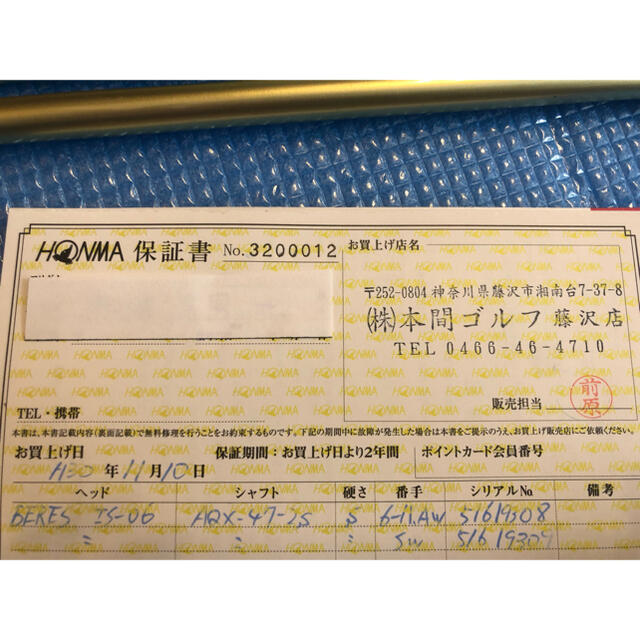 HONMA 保証書 No.3200012 お買上げ店名
〒252-0804 神奈川県藤沢市湘南台7-37-8
(株)本間ゴルフ 藤沢店
TEL 0466-46-4710
販売担当 前原
TEL・携帯
本書は、本書記載内容(裏面記載)で無料修理を行うことをお約束するものです。下記の期間中に故障が発生した場合は本書をご提示のうえ、お買上げ販売店にご依頼ください。
お買上げ日 H30年11月10日 保証期間:お買上げ日より2年間 ポイントカード会員番号
ヘッド シャフト 硬さ 番手 シリアルNo 備考
BERES IS-06 ARX-47-2S S 6-11.AW 51619308
〃 〃 〃 SW 51619309